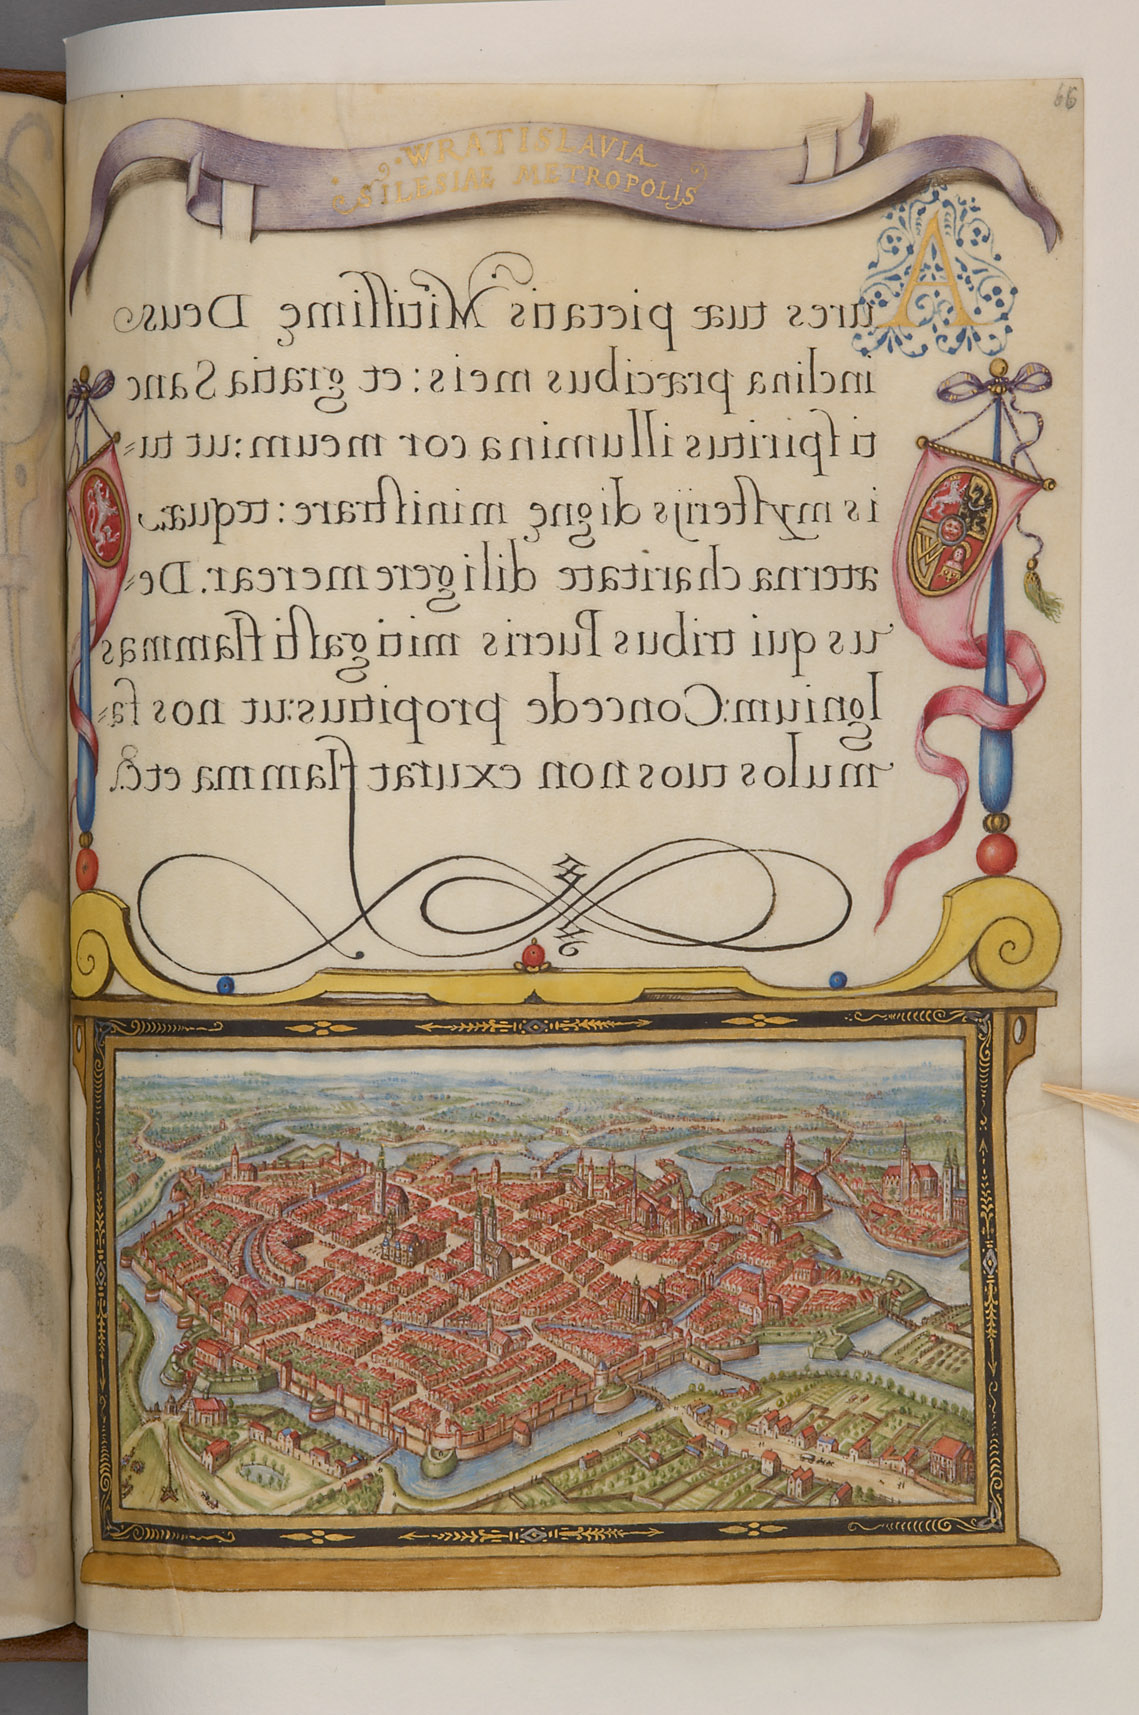 66
WRATISLAVIA
SILESIAE METROPOLIS
Aures tuæ pietatis Mitiſſimę Deus
inclina præcibus meis: et gratia Sanc
ti ſpiritus illumina cor meum: ut tu=
is myſterijs dignę miniſtrare: tequæ
aterna charitate diligere merear. De=
us qui tribus Pueris mitigaſti flammas
Ignium: Concede propitius: ut nos fa=
mulos tuos non exurat flamma etc.